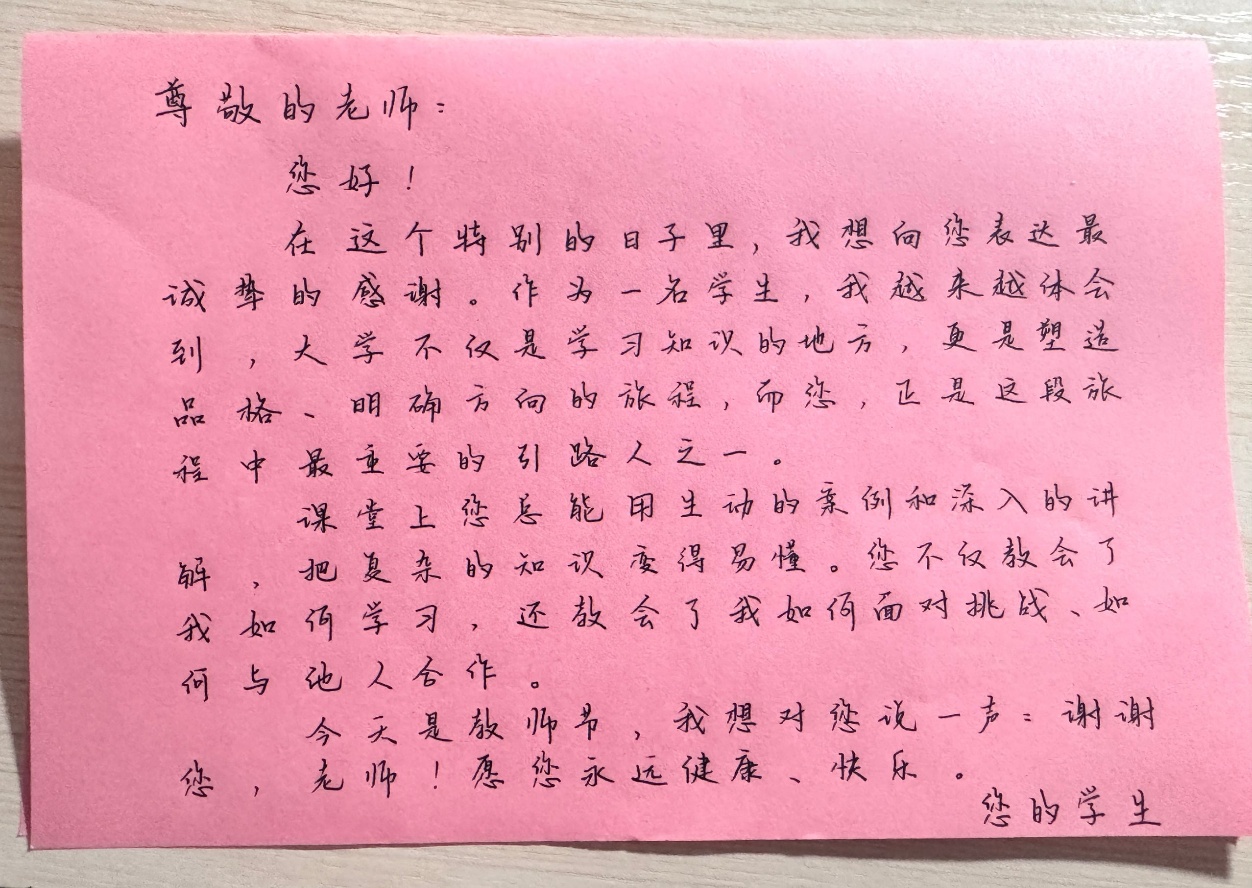 尊敬的老师：
您好！
在这个特别的日子里，我想向您表达最
诚挚的感谢。作为一名学生，我越来越体会
到，大学不仅是学习知识的地方，更是塑造
品格、明确方向的旅程，而您，正是这段旅
程中最重要的引路人之一。
课堂上您总能用生动的案例和深入的讲
解，把复杂的知识变得易懂。您不仅教会了
我如何学习，还教会了我如何面对挑战、如
何与他人合作。
今天是教师节，我想对您说一声：谢谢
您，老师！愿您永远健康、快乐。
您的学生